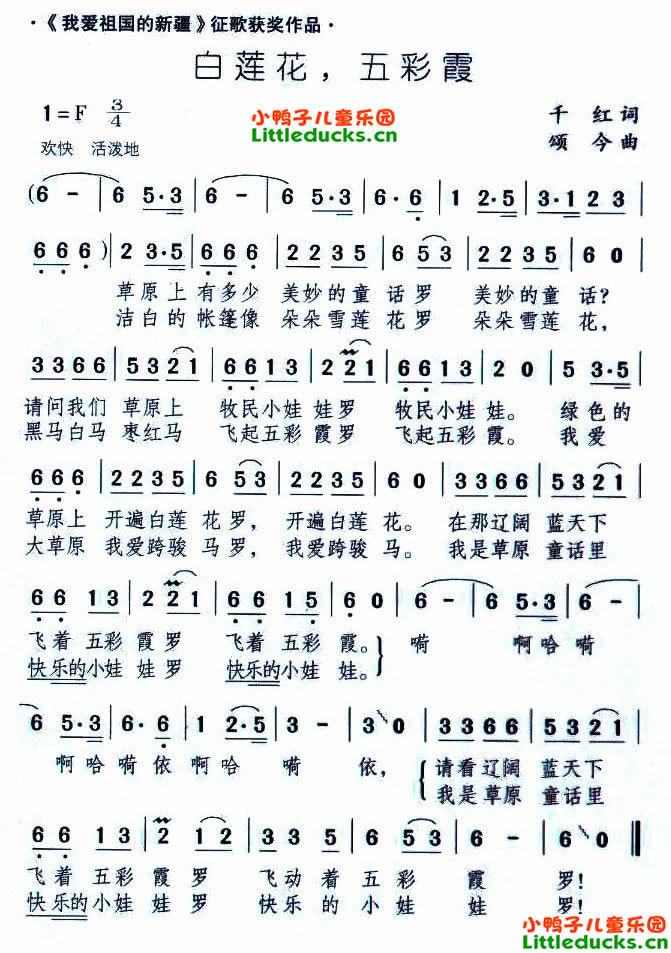 ·《我爱祖国的新疆》征歌获奖作品·
白莲花，五彩霞
1=F 3/4
小鸭子儿童乐园
Littleducks.cn
千 红词
颂 今曲
欢快 活泼地
(6 - | 6 5·3 | 6 - | 6 5·3 | 6·6 | 1 2·5 | 3·1 2 3 |
6 6 6) | 2 3·5 | 6 6 6 | 2 2 3 5 | 6 5 3 | 2 2 3 5 | 6 0 |
草原上有多少 美妙的童 话罗 美妙的童 话?
洁白的帐篷像 朵朵雪莲 花罗 朵朵雪莲 花,
3 3 6 6 | 5 3 2 1 | 6 6 1 3 | 2 2 1 | 6 6 1 3 | 2 0 | 5 3·5 |
请问我们 草原上 牧民小娃 娃罗 牧民小娃 娃。 绿色的
黑马白马 枣红马 飞起五彩 霞罗 飞起五彩 霞。 我爱
6 6 6 | 2 2 3 5 | 6 5 3 | 2 2 3 5 | 6 0 | 3 3 6 6 | 5 3 2 1 |
草原上 开遍白莲 花罗, 开遍白莲 花。 在那辽阔 蓝天下
大草原 我爱跨骏 马罗, 我爱跨骏 马。 我是草原 童话里
6 6 1 3 | 2 2 1 | 6 6 1 5 | 6 0 | 6 - | 6 5·3 | 6 - |
飞着 五彩 霞罗 飞着 五彩 霞。 嗬 啊哈嗬
快乐的小娃 娃罗 快乐的小娃 娃。
6 5·3 | 6·6 | 1 2·5 | 3 - | 3 0 | 3 3 6 6 | 5 3 2 1 |
啊哈嗬依啊哈 嗬 依, 请看辽阔 蓝天下
我是草原 童话里
6 6 1 3 | 2 1 2 | 3 5 3 | 5 6 5 | 6 - | 6 0 ‖
飞着 五彩 霞 罗 飞动着 五彩 霞 罗!
快乐的小娃 娃 罗 快乐的 小 娃 娃 罗!
小鸭子儿童乐园
Littleducks.cn